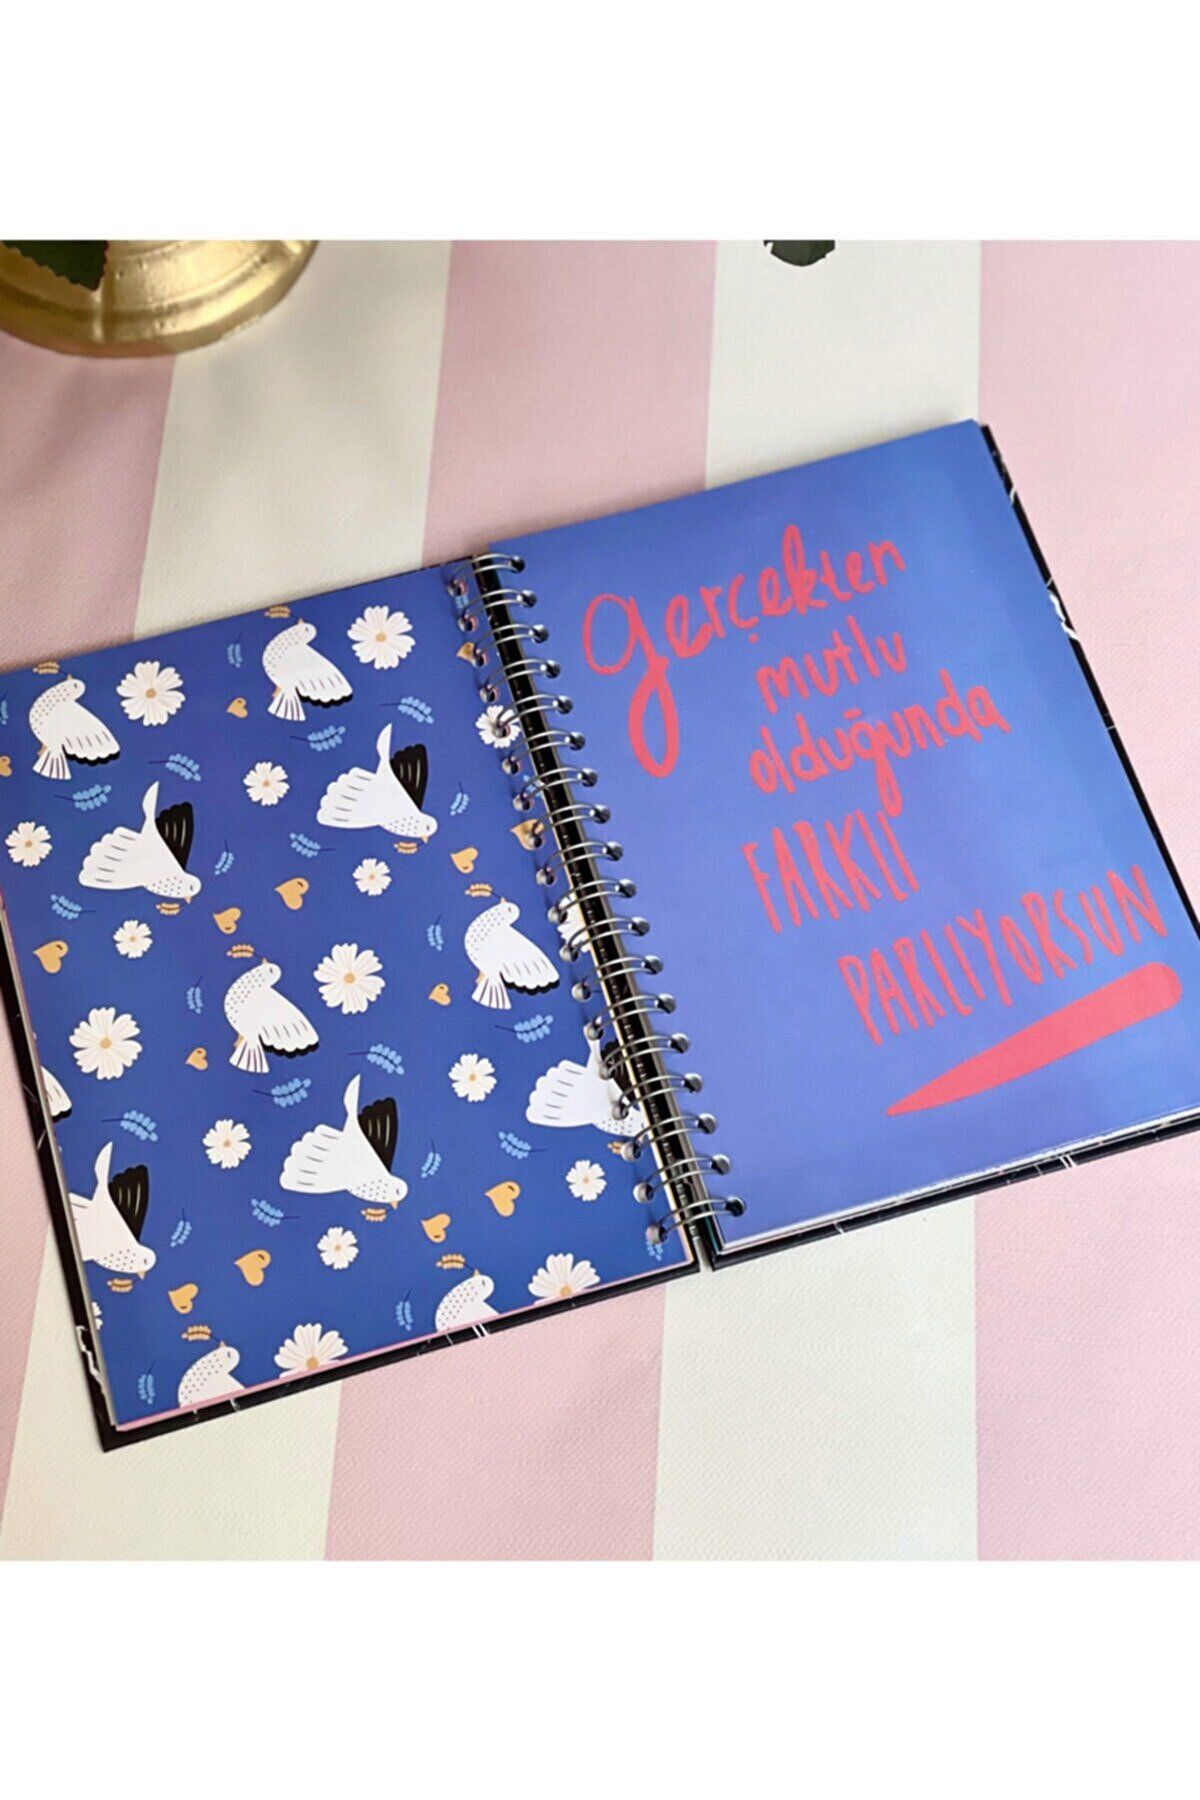 Gerçekten
mutlu
olduğunda
FARKLI
PARLIYORSUN